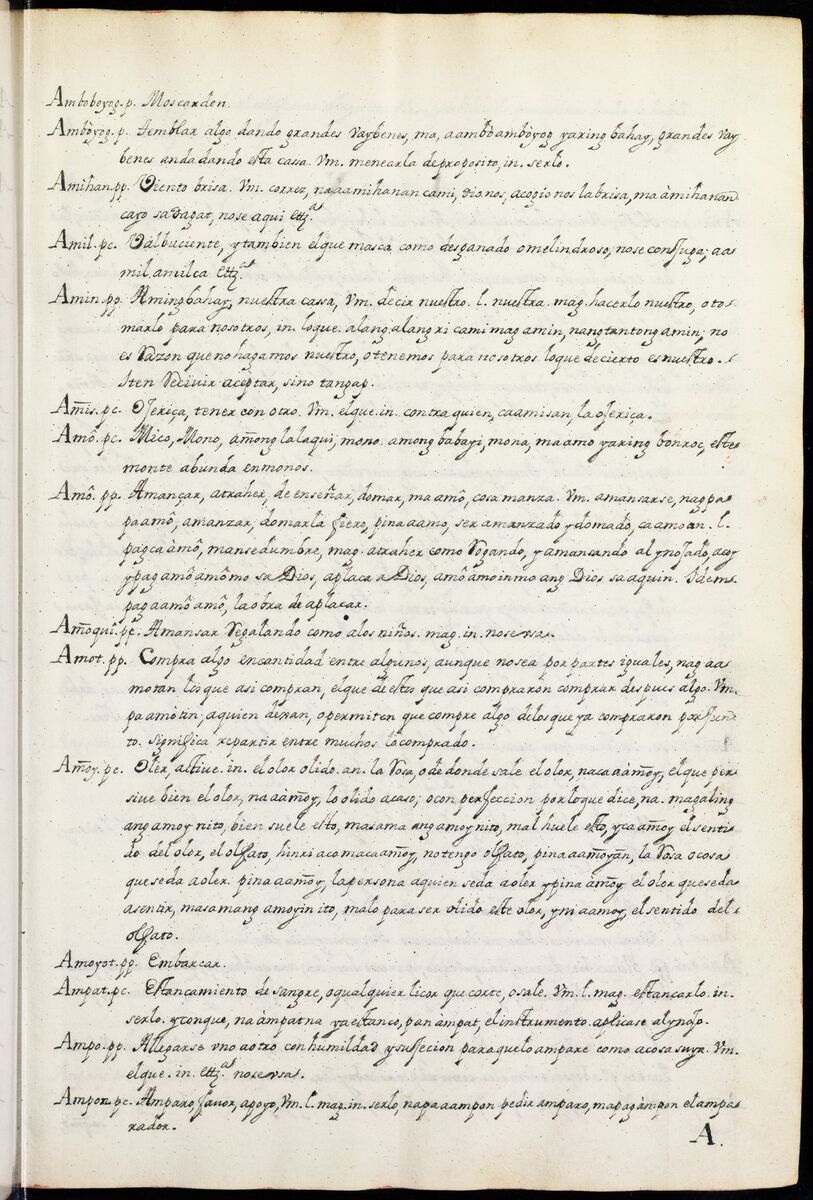 Amboboyog. p. Moscardon.
Amboyog. p. Temblar algo dando grandes vaybenes, ma, aamboamboyog yaring bahay, grandes vay
benes anda dando esta cassa. Vm. menearla deproposito, in. serlo.
Amihan. pp. Viento brisa. Vm. correr, naaamihanan cami, dionos, acogio nos labrisa, ma àmihanan
cayo sa dagat, nose aqui ettz.ª
Amil. pc. Valbuciente, y tambien elque masca como desganado omelindroso, nose conjuga; aa
mil. amilca ettz.ª
Amin. pp. Amingbahay, nuestra cassa, Vm. decir nuestro. l. nuestra. mag. hacerlo nuestro, oto
marlo para nosotros, in. loque. alangalangri cami magamin, nang amin; no
es Razon que no hagamos nuestro, otenemos para nosotros loque decierto es nuestro.
Iten Recivir aceptar, sino tangap.
Amis. pc. Ojeriça, tener con otro. Vm. elque. in. contra quien, caamisan, la ojeriça.
Amô. pc. Mico, Mono, amõng lalaqui, mono. among babayi, mona, maamo yaring bonroc, este
monte abunda enmonos.
Amô. pp. Amançar, atraher, de enseñar, domar, ma amô, cosa manza. Vm. amansarse, nagpa
paamô, amanzar, domarla fiero, pinaaamo, ser amanzado y domado, caamoan. l.
pagcaàmô, mansedumbre, mag. atraher como Rogando, y amansando al ynojado, acoy
ypagamôamômo sa Dios, aplaca a Dios, amôamoinmo ang Dios sa aquin. Idem.
pagaamôamô, la obra de aplacar.
Amoqui. pc. Amansar Regalando como alos niños. mag. in. nose usa.
Amot. pp. Compra algo encantidad entre algunos, aunque nosea por partes iguales, nag aa
motan los que asi compran, elque de estos que asi compraron comprar despues algo. Vm.
pa amòtin, aquien dexan, opermiten que compre algo delosque ya compraron por jun
to. significa repartir entre muchos locomprado.
Amoy. pc. Oler, active. in. el olor olido. an. la Rosa, ode donde sale el olor, nacaaàmoy, el que per
sive bien el olor, naaàmoy, lo olido acaso, ocon perfeccion por loque dice, na. magaling
ang amoy nito, bien suele esto, masama ang amoy nito, mal huele esto, yca amoy el senti
do del olor, el olfato, hinri aco macaamoy, notengo olfato, pinaaamoyan, la Rosa ocosa
que seda aoler. pinaaamoy, lapersona aquien seda aoler ypina àmoy. el olor queseda
asentir, masamang amoyin ito, malo para ser olido este olor, yniaamoy, el sentido del
olfato.
Amoyot. pp. Embarcar.
Ampat. pc. Estancamiento de sangre, oqualquier licor que corte, o sale. Vm. l. mag. estancarlo. in.
serlo. y conque, na àmpatna yaestanco, pan àmpat, el instrumento. aplicase al ynojo.
Ampo. pp. Allegarse uno aotro con humildad y sujecion paraquelo ampare como acosa suya. Vm.
elque. in. ettz.ª nose usa.
Ampon. pc. Amparo, favor, apoyo, Vm. l. mag. in. serlo, napaaampon pedir amparo, mapagàmpon el ampa
rador.
A.